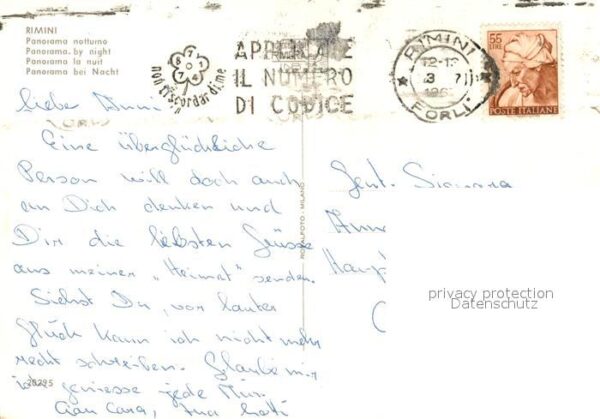 RIMINI
Panorama notturno
Panorama by night
Panorama la nuit
Panorama bei Nacht
non ti scordar di me
APPLICATE
IL NUMERO
DI CODICE
RIMINI
12-12
3 7
196
FORLI'
55
LIRE
POSTE ITALIANE
Liebe Anni
Eine überglückliche
Person will doch auch
an Dich denken und
Dir die liebsten Grüsse
aus meiner „Heimat" senden.
Siehst Du, vor lauter
Glück kann ich nicht mehr
recht schreiben. Glaube mir
ich geniesse jede Min.
Ciao Cara,
ROTALFOTO - MILANO
28295
Gent. Signora
Haup
privacy protection
Datenschutz